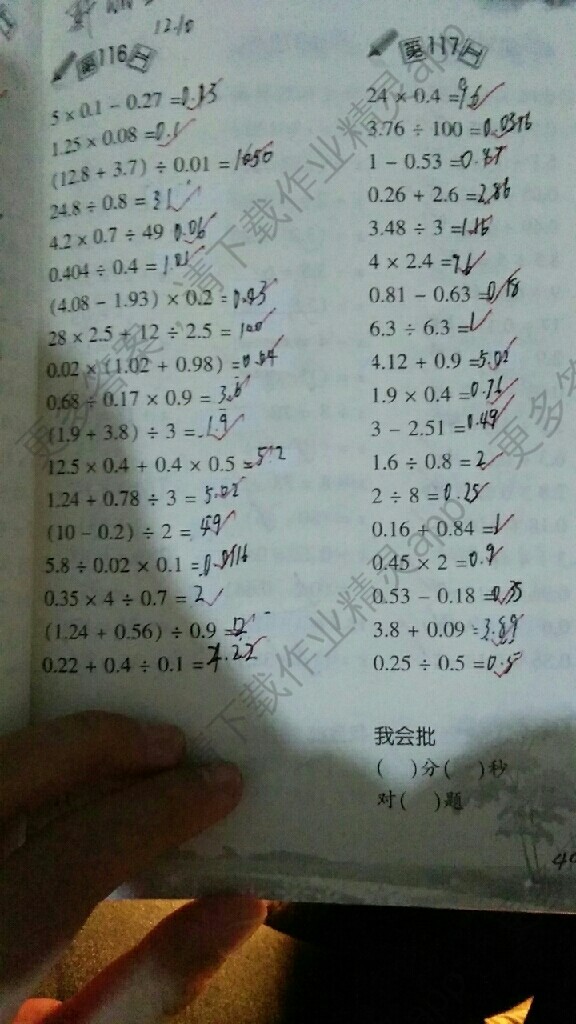 12.10
第116日
5 × 0.1 − 0.27 = 0.23
1.25 × 0.08 = 0.1
(12.8 + 3.7) ÷ 0.01 = 1650
24.8 ÷ 0.8 = 31
4.2 × 0.7 ÷ 49 0.06
0.404 ÷ 0.4 = 1.01
(4.08 − 1.93) × 0.2 = 0.43
28 × 2.5 + 12 ÷ 2.5 = 100
0.02 × (1.02 + 0.98) = 0.04
0.68 ÷ 0.17 × 0.9 = 3.6
(1.9 + 3.8) ÷ 3 = 1.9
12.5 × 0.4 + 0.4 × 0.5 = 5.2
1.24 + 0.78 ÷ 3 = 5.02
(10 − 0.2) ÷ 2 = 49
5.8 ÷ 0.02 × 0.1 = 0.0116
0.35 × 4 ÷ 0.7 = 2
(1.24 + 0.56) ÷ 0.9 =
0.22 + 0.4 ÷ 0.1 = 4.22
第117日
24 × 0.4 = 9.6
3.76 ÷ 100 = 0.0376
1 − 0.53 = 0.47
0.26 + 2.6 = 2.86
3.48 ÷ 3 = 1.16
4 × 2.4 = 9.6
0.81 − 0.63 = 0.18
6.3 ÷ 6.3 = 1
4.12 + 0.9 = 5.02
1.9 × 0.4 = 0.76
3 − 2.51 = 0.49
1.6 ÷ 0.8 = 2
2 ÷ 8 = 0.25
0.16 + 0.84 = 1
0.45 × 2 = 0.9
0.53 − 0.18 = 0.35
3.8 + 0.09 = 3.89
0.25 ÷ 0.5 = 0.5
我会批
( )分( )秒
对( )题
更多答案 请下载作业精灵app
更多答案 请下载作业精灵app